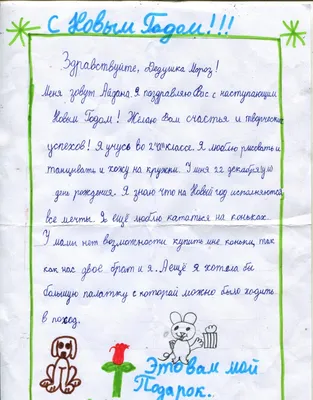 С Новым Годом!!!
Здравствуйте, Дедушка Мороз!
Меня зовут Айдана. Я поздравляю Вас с наступающим
Новым Годом! Желаю Вам счастья и творческих
успехов! Я учусь во 2 классе. Я люблю рисовать и
танцевать и хожу на кружки. У меня 22 декабря
день рождения. Я знаю что на Новый год исполняются
все мечты. Я ещё люблю кататься на коньках.
У мамы нет возможности купить мне коньки, так
как нас двое брат и я. А ещё я хотела би
большую палатку с которой можно было ходить
в поход.
Это вам мой
Подарок.